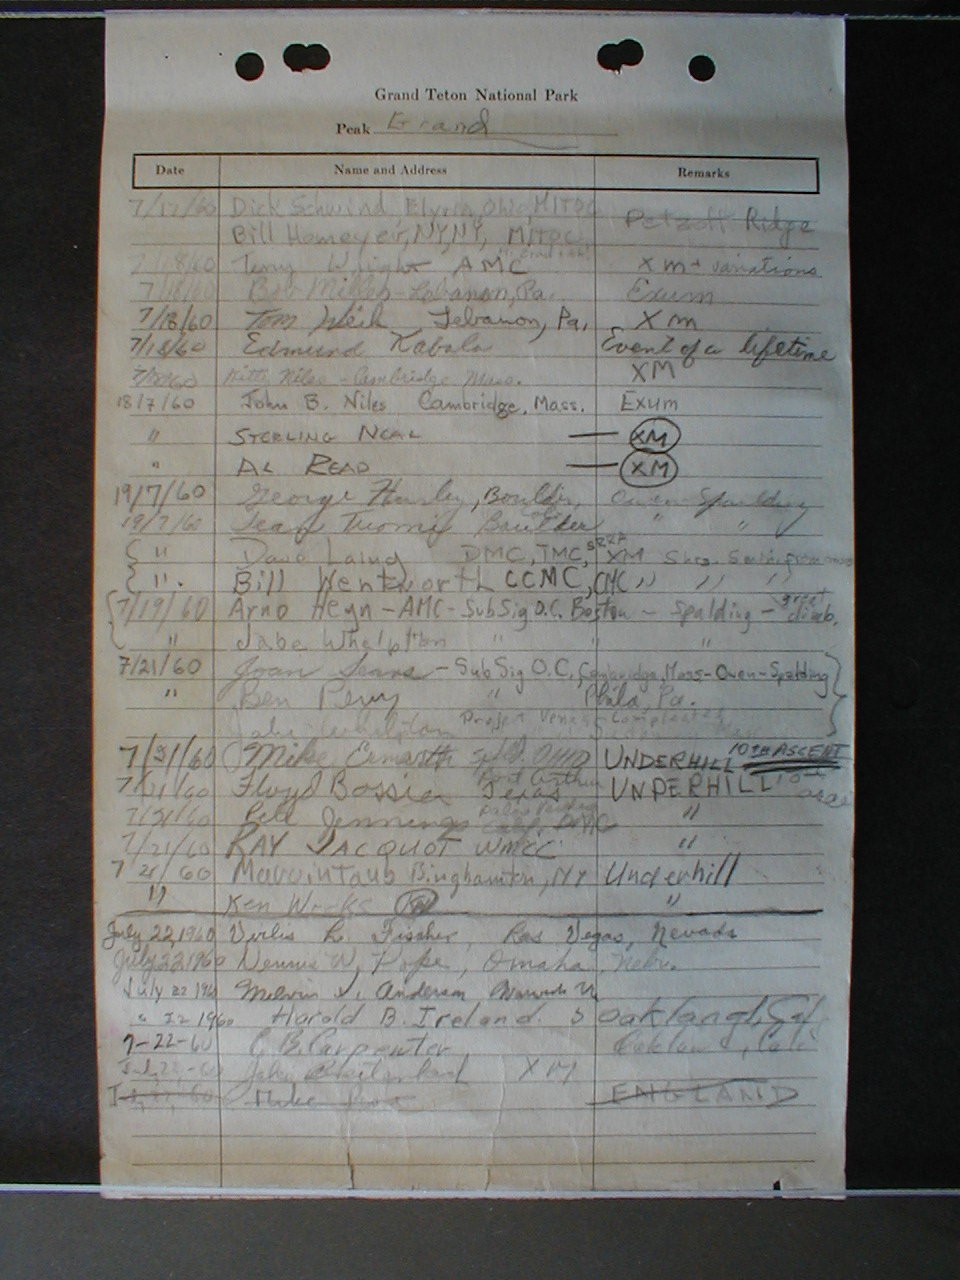 Grand Teton National Park
Peak Grand
Date Name and Address Remarks
7/17/60 Dick Schwind, Elyria, Ohio, MITOC
Bill Homeyer, NY, NY, MITOC Petzolt Ridge
/18/60 Terry Wright AMC XM + variations
7/18/60 Bob Miller - Lebanon, Pa. Exum
7/18/60 Tom Lebanon, Pa. XM
7/18/60 Edmund Kabala Event of a lifetime
Niles - Cambridge Mass. XM
18/7/60 John B. Niles Cambridge, Mass. Exum
" STERLING NEAL — XM
" AL READ — XM
19/7/60 George Hurley, Boulder, Owen Spalding
19/7/60 Jean Boulder " "
" Dave Laing DMC, TMC, XM
". Bill Wentworth CCMC, CMC " " "
7/19/60 Arno Heyn - AMC - SubSig O.C. Boston - Spalding - great climb.
" Jabe Whelpton " " "
7/21/60 Joan - SubSig O.C. Cambridge, Mass - Owen - Spalding
" Ben Perry " Phila, Pa.
Whelpton Project
7/21/60 Mike Ohio UNDERHILL 10TH ASCENT
7/21/60 Floyd Bossier Port Arthur Texas UNDERHILL
7/21/60 Bill Jennings Calif. "
7/21/60 RAY JACQUOT WMCC "
7 21 60 Binghamton, NY Underhill
" Ken Weeks "
July 22, 1960 Virlis L. Fischer, Las Vegas, Nevada
July 22 1960 Dennis W. Pope, Omaha, Nebr.
July 22 196 Melvin J. Anderson
" 22 1960 Harold B. Ireland. Oakland, Cal
7-22-60 C. B. Carpenter Oakland, Cali
July 22, -60 John XM
Mike ENGLAND